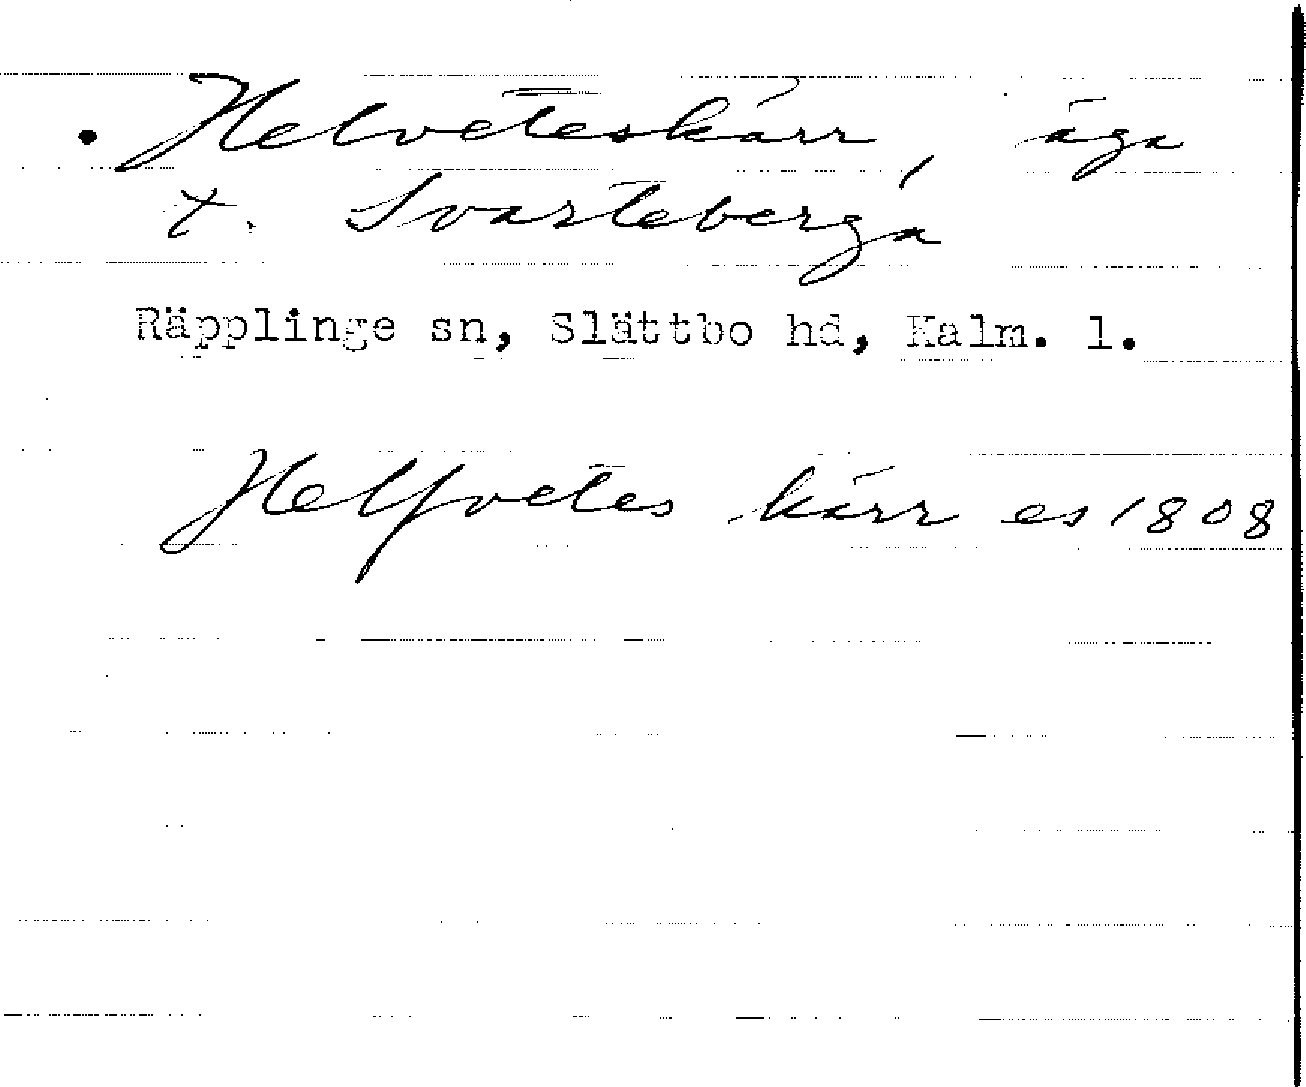 Helveteskärr, äga
t. Svarteberga
Räpplinge sn, Slättbo hd, Kalm. l.
Helfvetes kärr es 1808